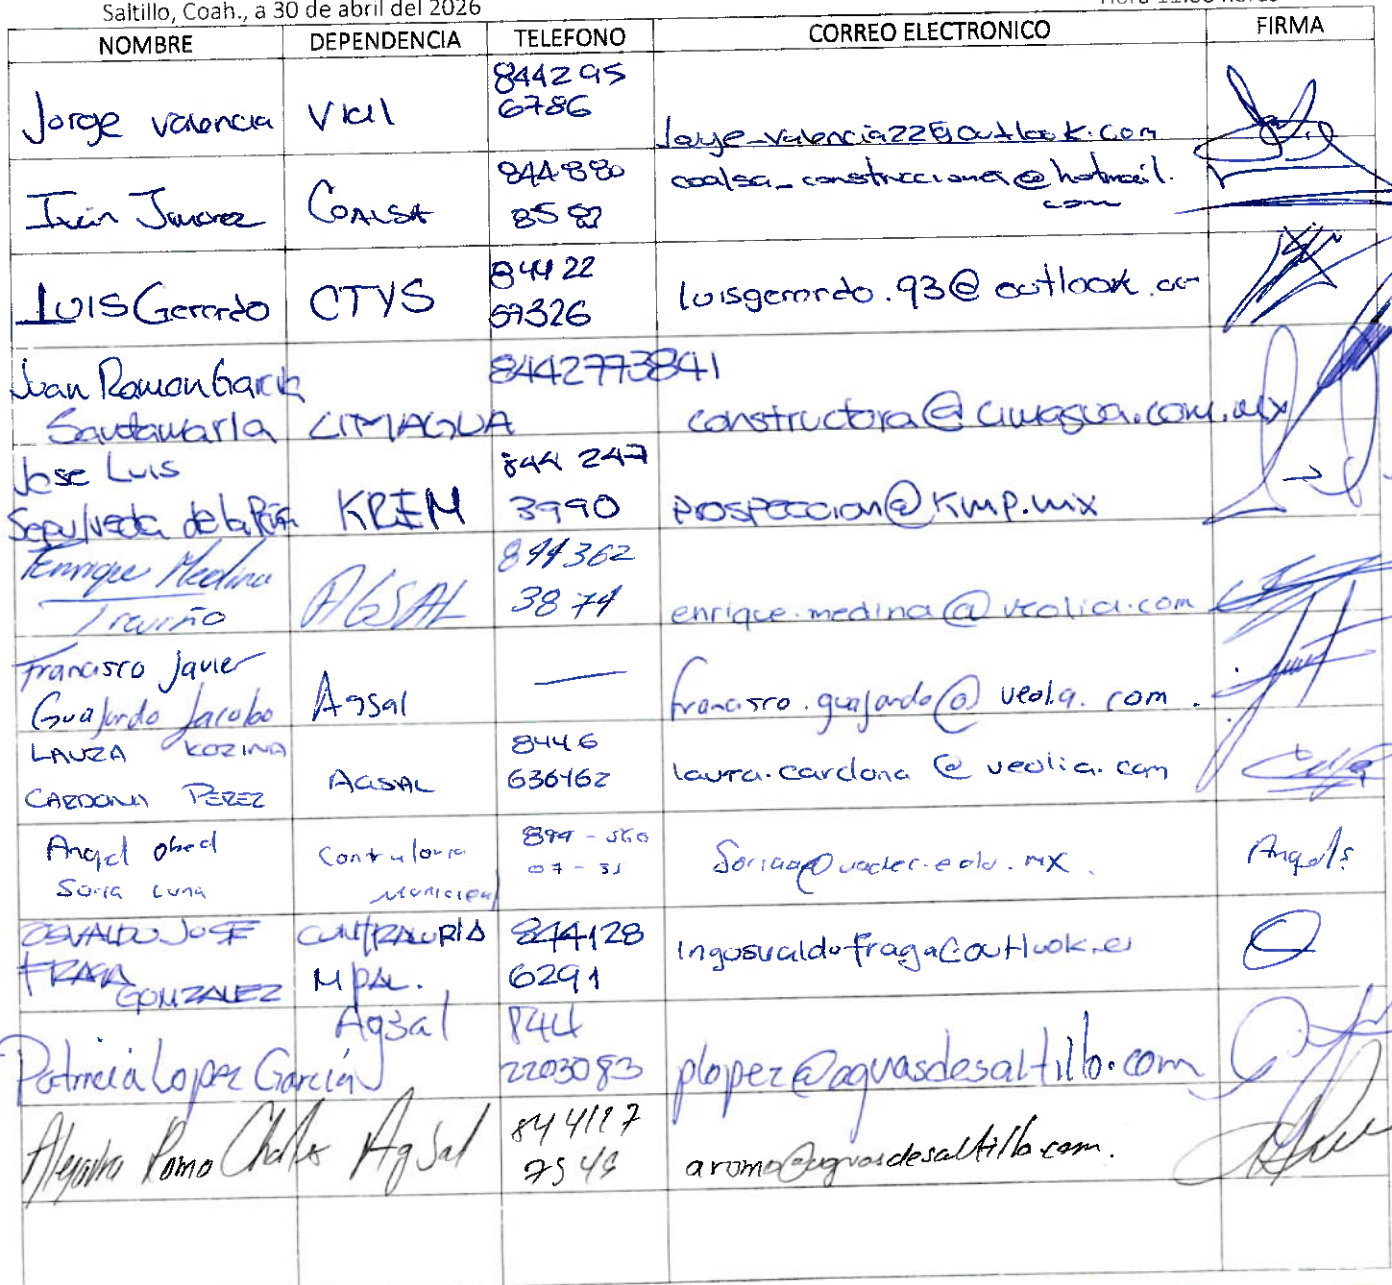 Saltillo, Coah., a 30 de abril del 2026
NOMBRE DEPENDENCIA TELEFONO CORREO ELECTRONICO FIRMA
Jorge Valencia Vial 844295
6786 Jorge_valencia22@outlook.com
Iván Coalsa 844880
85 coalsa_construcciones@hotmail.
com
LUIS Gerardo CTYS 84422
69326 luisgerardo.93@outlook.co
Juan Ramon Garcia
Santamaria CIMAGUA 8442773841
constructora@cimagua.com.mx
Jose Luis
Sepulveda de la Peña KREM 844 247
3990 prospeccion@kmp.mx
Enrique Medina
Treviño AGSAL 844362
3874 enrique.medina@veolia.com
Francisco Javier
Guajardo Jacobo Agsal — francisco.guajardo@veolia.com.
LAURA KORINA
CARDONA PEREZ AGSAL 8446
636162 laura.cardona@veolia.com
Angel Obed
Soria Luna Contraloria
Municipal 844-560
07-31 Soriaa@uadec.edu.mx. Angel S.
OSVALDO JOSE
FRAGA
GONZALEZ CONTRALORIA
MPAL. 844128
6291 ingosvaldofraga@outlook.es
Patricia Lopez García Agsal 844
2203083 plopez@aguasdesaltillo.com
Alejandra Romo AgSal 844117
aromo@aguasdesaltillo.com.